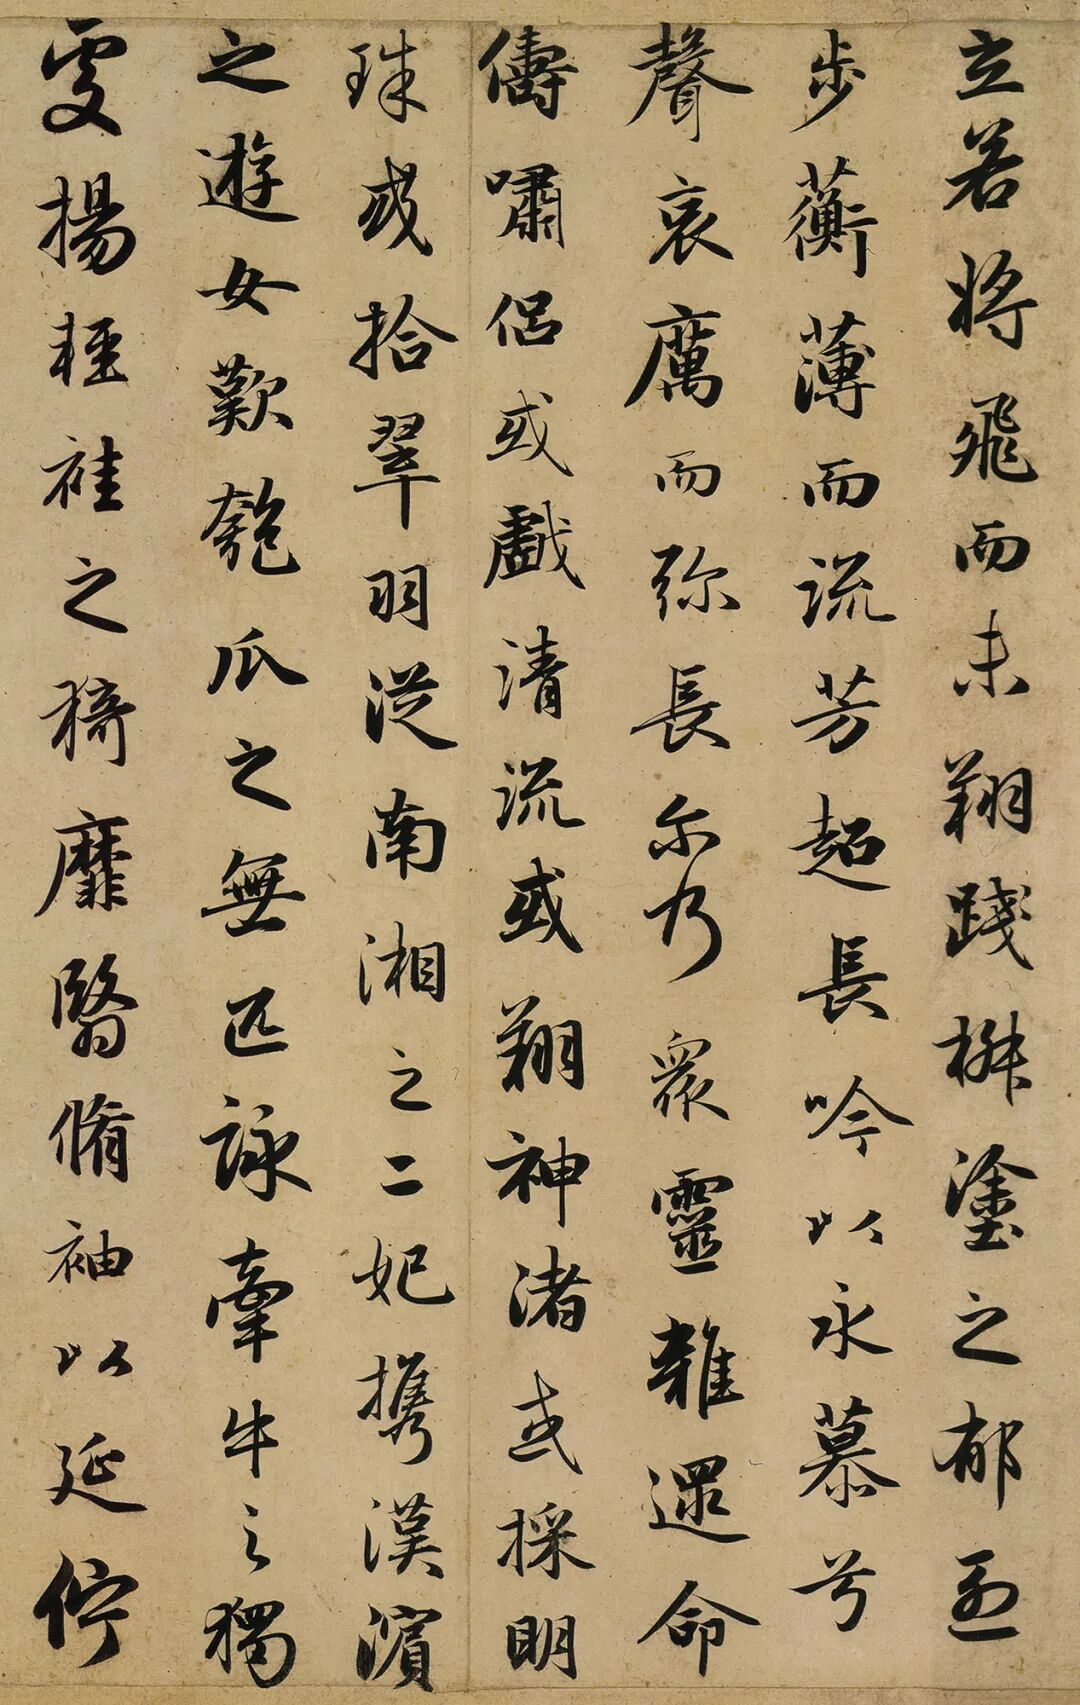 立若將飛而未翔踐椒塗之郁烈
步蘅薄而流芳超長吟以永慕兮
聲哀厲而弥長尒乃眾靈雜遝命
儔嘯侶或戲清流或翔神渚或採明
珠或拾翠羽從南湘之二妃攜漢濱
之遊女歎匏瓜之無匹詠牽牛之獨
處揚輕袿之猗靡翳脩袖以延佇